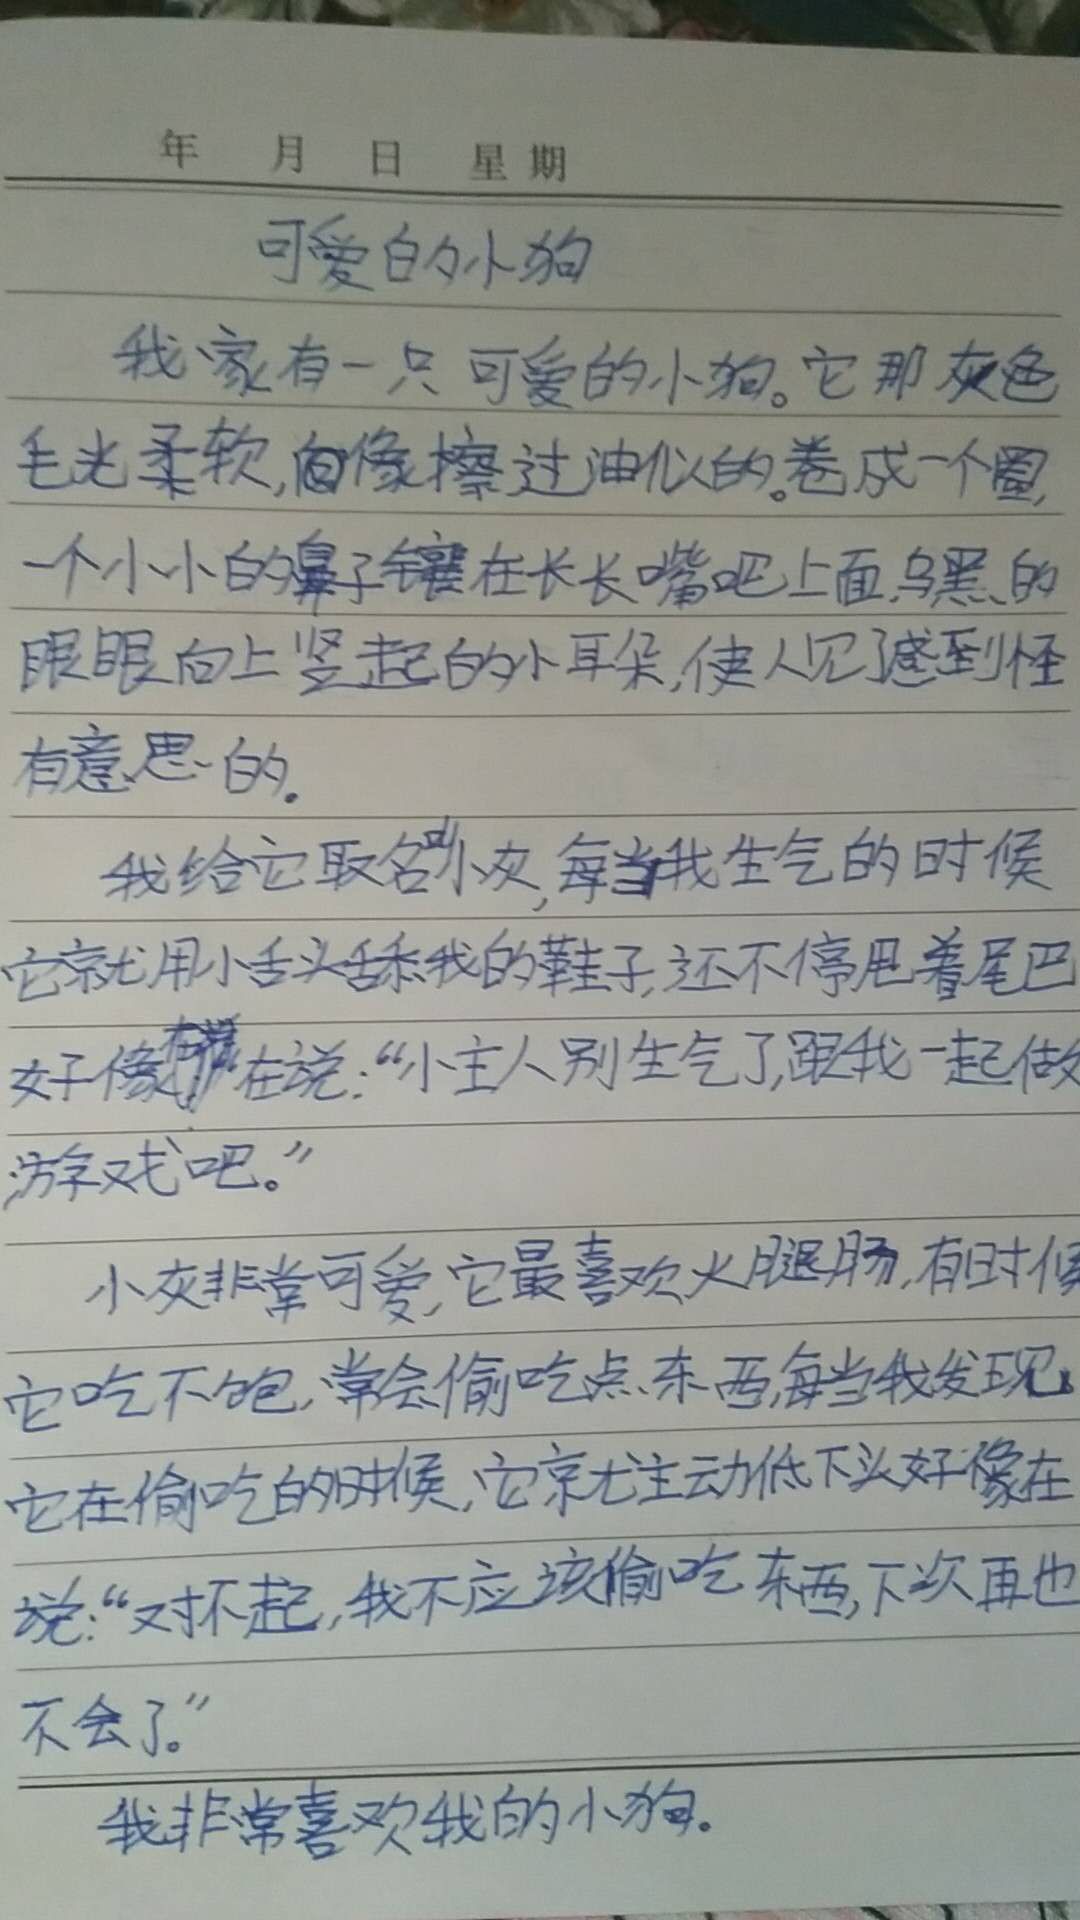 年 月 日 星期
可爱的小狗
我家有一只可爱的小狗。它那灰色
毛光柔软,像擦过油似的。卷成一个圈,
一个小小的鼻子镶在长长嘴吧上面,乌黑的
眼眼向上竖起的小耳朵,使人见了感到怪
有意思的。
我给它取名叫小灰,每当我生气的时候
它就用小舌头舔我的鞋子,还不停甩着尾巴
好像在说:“小主人别生气了,跟我一起做
游戏吧。”
小灰非常可爱,它最喜欢火腿肠,有时候
它吃不饱,常会偷吃点东西,每当我发现
它在偷吃的时候,它就主动低下头好像在
说:“对不起,我不应该偷吃东西,下次再也
不会了。”
我非常喜欢我的小狗.